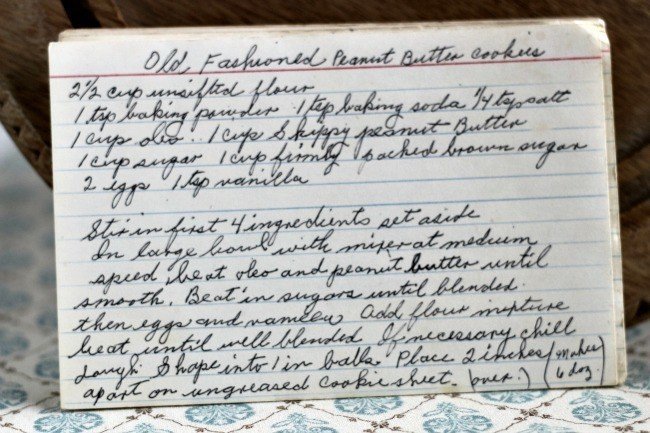 Old Fashioned Peanut Butter Cookies
2 1/2 cup unsifted flour
1 tsp baking powder 1 tsp baking soda 1/4 tsp salt
1 cup oleo . 1 cup Skippy peanut Butter
1 cup sugar 1 cup firmly packed brown sugar
2 eggs 1 tsp vanilla
Stir in first 4 ingredients set aside
In large bowl with mixer at medium
speed beat oleo and peanut butter until
smooth. Beat in sugars until blended
then eggs and vanilla Add flour mixture
beat until well blended If necessary chill
dough. Shape into 1 in balls. Place 2 inches
apart on ungreased cookie sheet. (over.) (Makes 6 doz)